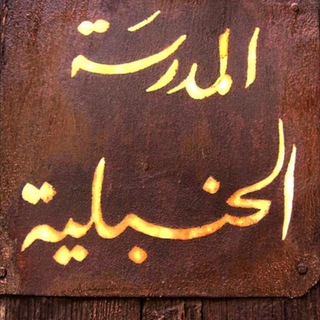 المدرسَة
الحنبلية